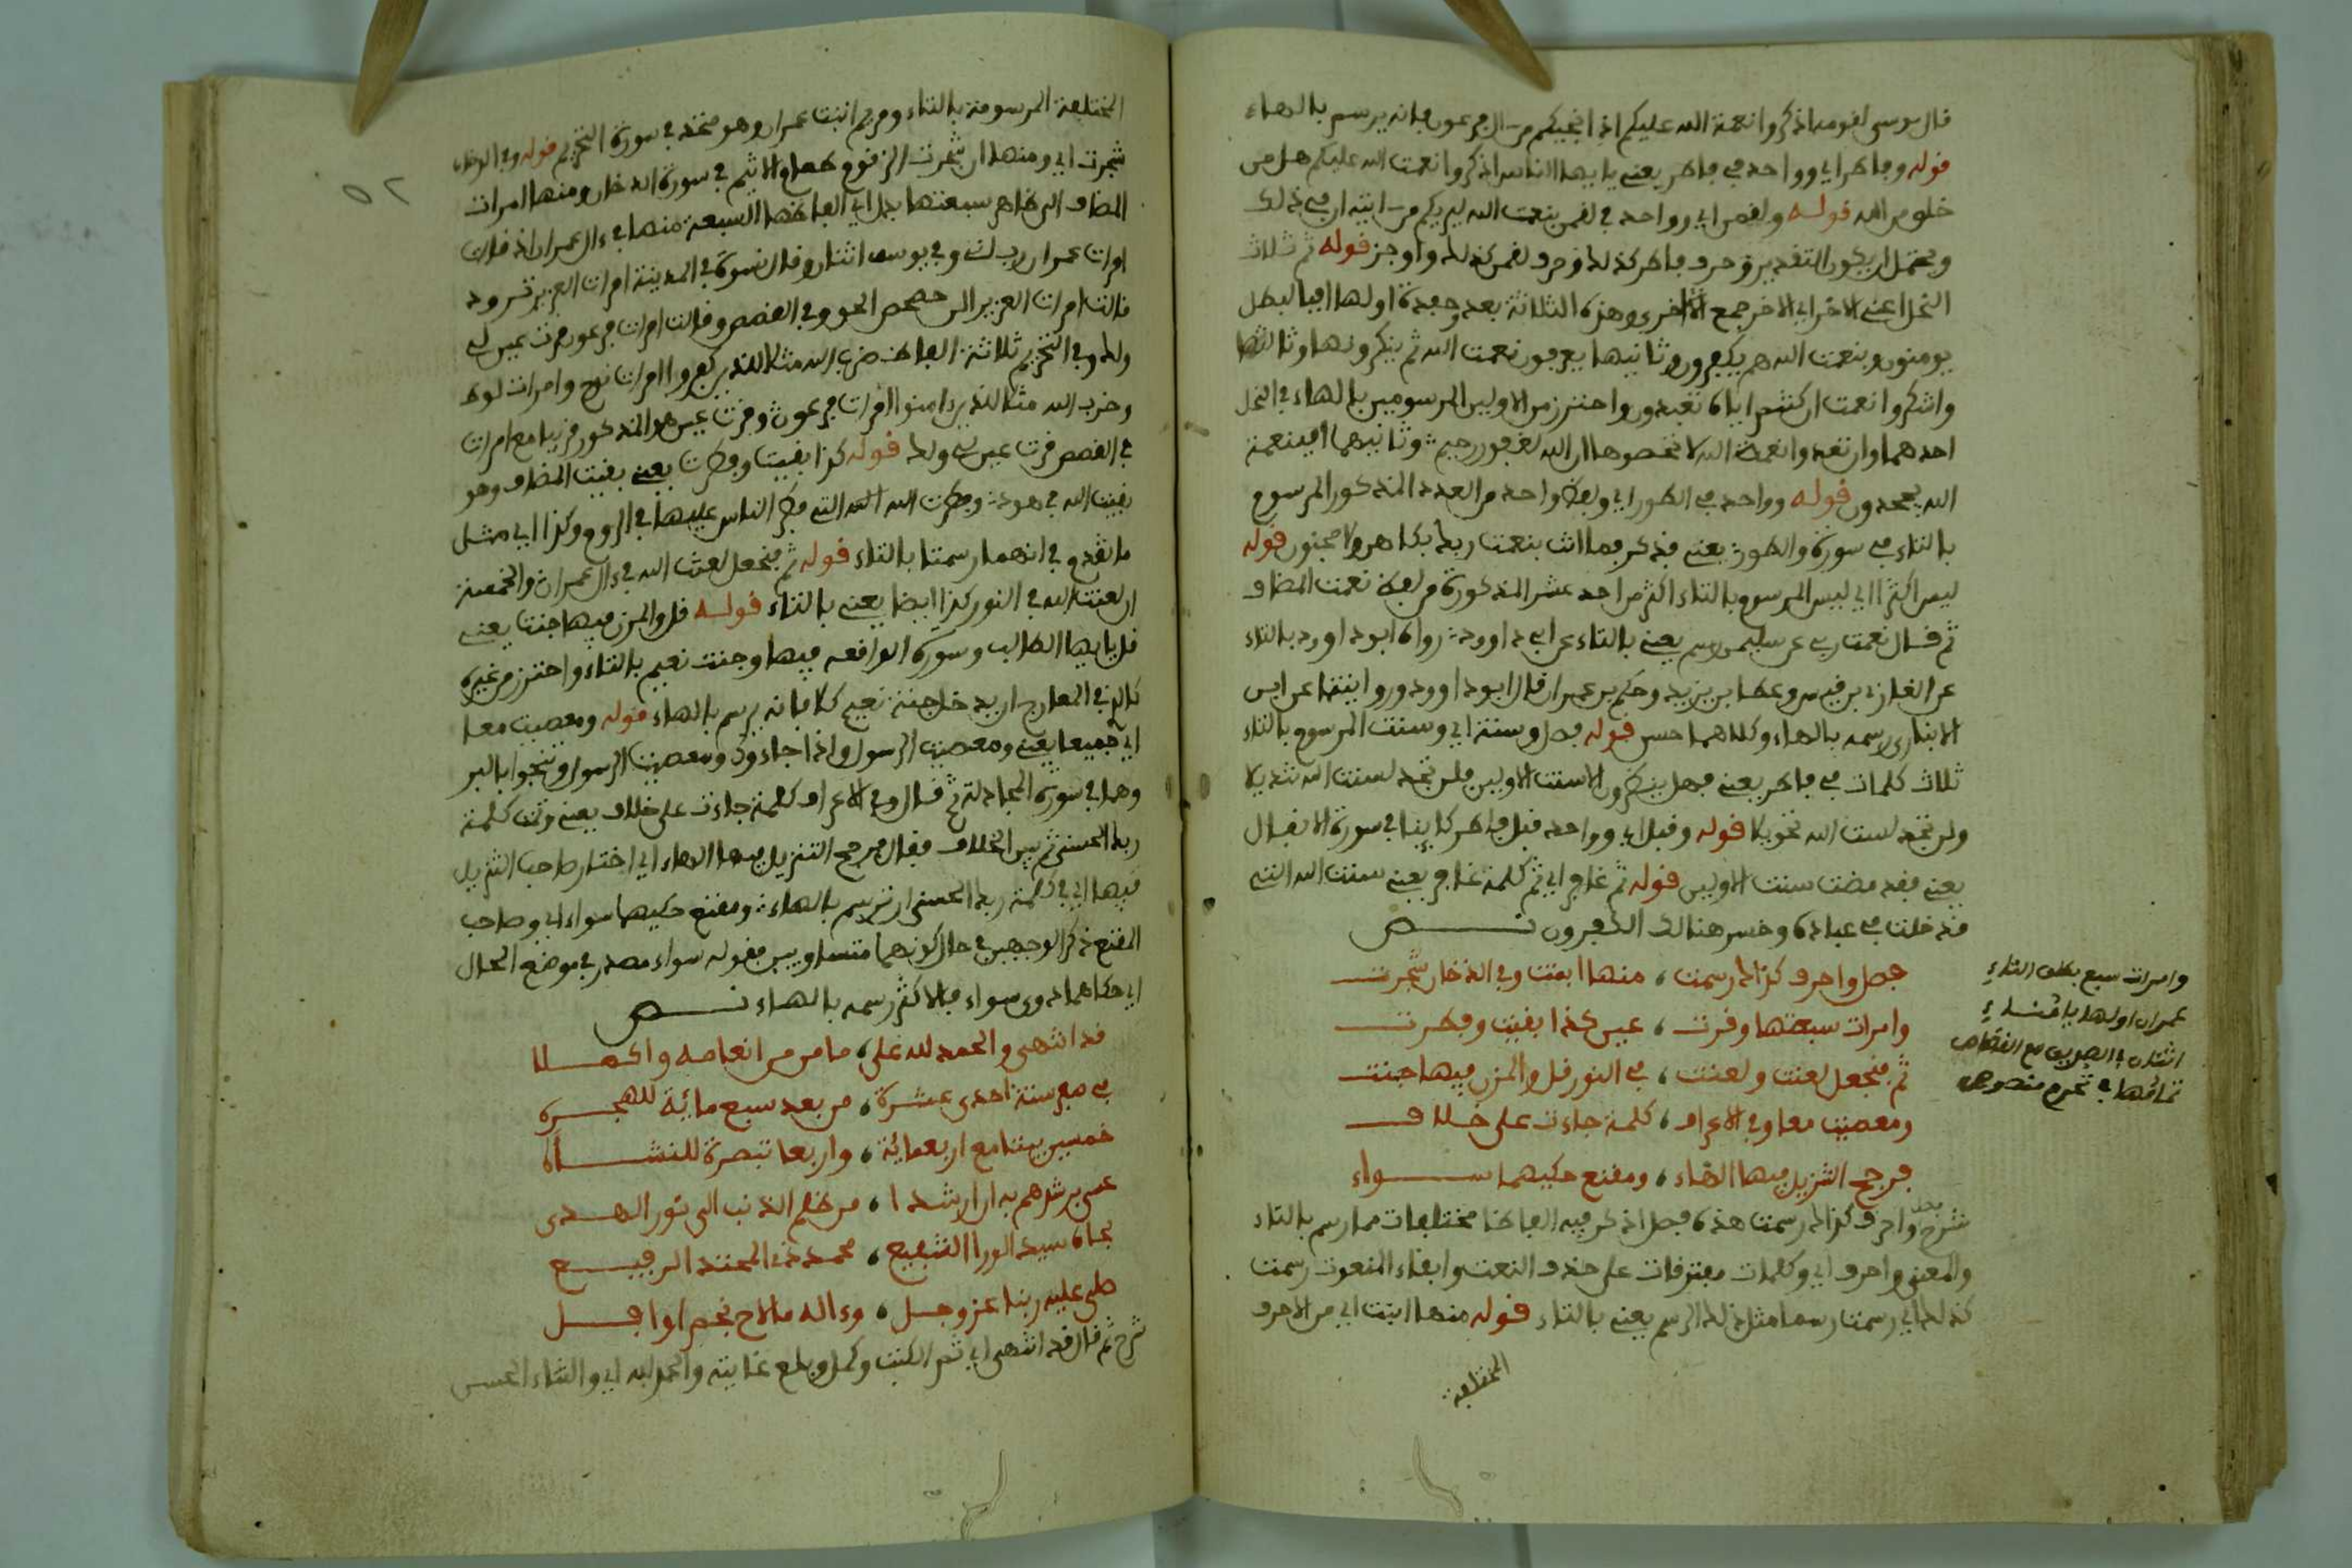 قال موسى لقومه اذكروا نعمة الله عليكم اذ انجيكم من ال فرعون فانه يرسم بالهاء
قوله وفاطر اي وواحد في فاطر يعني يايها الناس اذكروا نعمت الله عليكم هل من
خلو من الله قوله ولقمن اي وواحد في لقمن بنعمت الله ليريكم من ايته ان في ذلك
ويحتمل ان يكون التقدير وحرف فاطر كذلك وحرف لقمن كذلك واوجز قوله ثم ثلاث
النحل اعني الاخر اي الاخر جمع الاخرى وهذه الثلاثة بعد وحفدة اولها افبالبطل
يومنون وبنعمت الله هم يكفرون وثانيها يعرفون نعمت الله ثم ينكرونها وثالثها
واشكروا نعمت ان كنتم اياه تعبدون واحترز من الاولين المرسومين بالهاء في النحل
احدهما وان تعدوا نعمة الله لا تحصوها ان الله لغفور رحيم وثانيهما افبنعمة
الله يجحدون قوله وواحد في الطور اي ولفظ واحد من العدد المذكور المرسوم
بالتاء في سورة والطور يعني فذكر فما انت بنعمت ربك بكاهن ولا مجنون قوله
ليس اكثر اي ليس المرسوم بالتاء اكثر من احد عشر المذكورة من لفظ نعمت المضاف
ثم قال نعمت ربي عن سليمن رسم يعني بالتاء عن ابي داوود رواه ابو داوود بالتاء
عن الغازي بن قيس وعطا بن يزيد وحكم بن عمران قال ابو داوود وروايتنا عن ابن
الانباري رسمه بالهاء وكلاهما حسن قوله فصل وسنة اي وسنت المرسوم بالتاء
ثلاث كلمات في فاطر يعني فهل ينظرون الا سنت الاولين فلن تجد لسنت الله تبديلا
ولن تجد لسنت الله تحويلا قوله وقبل اي وواحد قبل فاطر كاينا في سورة الانفال
يعني فقد مضت سنت الاولين قوله ثم غافر اي ثم كلمة غافر يعني سنت الله التي
قد خلت في عباده وخسر هنالك الكفرون نص
فصل واحرف كذاك رسمت ، منها ابنت وفي الدخان شجرت
وامرات سبعتها وقرت ، عين كذا بقيت وفطرت
ثم فنجعل لعنت ولعنت ، في النور قل والمزن فيها جنت
ومعصيت معا وفي الاعراف ، كلمة جاءت على خلاف
فرجح التنزيل فيها الهاء ، ومقنع حكيهما سواء
وامرات سبع بكلف التاء
عمران اولها يا قتلاء
اثنان في الصديق مع القصاص
ثمانها في تحرم منصوص
شرح واحرف كذاك رسمت هذه فصل اذكر فيه الفاظا مختلفات مما رسم بالتاء
والمعنى واحرف اي وكلمات مفترقات على حذف النعت وابقاء المنعوت رسمت
كذلك اي رسمت رسما مثل ذلك الرسم يعني بالتاء قوله منها ابنت اي من الاحرف
المختلفة
٥٢
المختلفة المرسومة بالتاء ومريم ابنت عمران وهو متحد في سورة التحريم قوله وفي الدخان
شجرت اي ومنها ان شجرت الزقوم طعام الاثيم في سورة الدخان ومنها امرات
المضاف الى ظاهر سبعتها بدل اي الفاظها السبعة منها في ءال عمران اذ قالت
امرات عمران رب لك وفي يوسف اثنان وقال نسوة في المدينة امرات العزيز ترود
قالت امرات العزيز الن حصحص الحق وفي القصص وقالت امرات فرعون قرت عين لي
ولك وفي التحريم ثلاثة الفاظ ضرب الله مثلا للذين كفروا امرات نوح وامرات لوط
وضرب الله مثلا للذين ءامنوا امرات فرعون وقرت عين هو المذكور قريبا مع امرات
في القصص قرت عين لي ولك قوله كذا بقيت وفطرت يعني بقيت المضاف وهو
بقيت الله في هود وفطرت الله التي فطر الناس عليها في الروم وكذا اي مثل
ما تقدم في انهما رسمتا بالتاء قوله ثم فنجعل لعنت الله في ءال عمران والخمسة
ان لعنت الله في النور كذا ايضا يعني بالتاء قوله قل والمزن فيها جنت يعني
قل يايها الطالب وسورة الواقعة فيها وجنت نعيم بالتاء واحترز من غيره
كالذي في المعارج ان يدخل جنة نعيم كلا فانه يرسم بالهاء قوله ومعصيت معا
اي جميعا يعني ومعصيت الرسول واذا جاءوك ومعصيت الرسول وتنجوا بالبر
وهما في سورة المجادلة ثم قال وفي الاعراف كلمة جاءت على خلاف يعني وتمت كلمة
ربك الحسنى ثم بين الخلاف فقال فرجح التنزيل فيها الهاء اي اختار صاحب التنزيل
فيها اي في كلمة ربك الحسنى ان ترسم بالهاء ومقنع حكيهما سواء اي وصاحب
المقنع ذكر الوجهين في حال كونهما متساويين فقوله سواء مصدر في موضع الحال
اي حكاهما ذوي سواء فالاكثر رسمه بالهاء نص
قد انتهى والحمد لله على ، ما من من انعامه واكملا
في صفر سنة احدى عشرة ، من بعد سبع مائية للهجرة
خمسين بيتا مع اربعمائة ، واربعا تبصرة للنشأة
عسى برشدهم به ان ارشدا ، من ظلم الذنب الى نور الهدى
بجاه سيد الورا الشفيع ، محمد ذي المحتد الرفيع
صلى عليه ربنا عز وجل ، وءاله ما لاح نجم او افل
شرح ثم قال قد انتهى اي تم الكتب وكمل وبلغ غايته والحمد لله اي والثناء الحسن